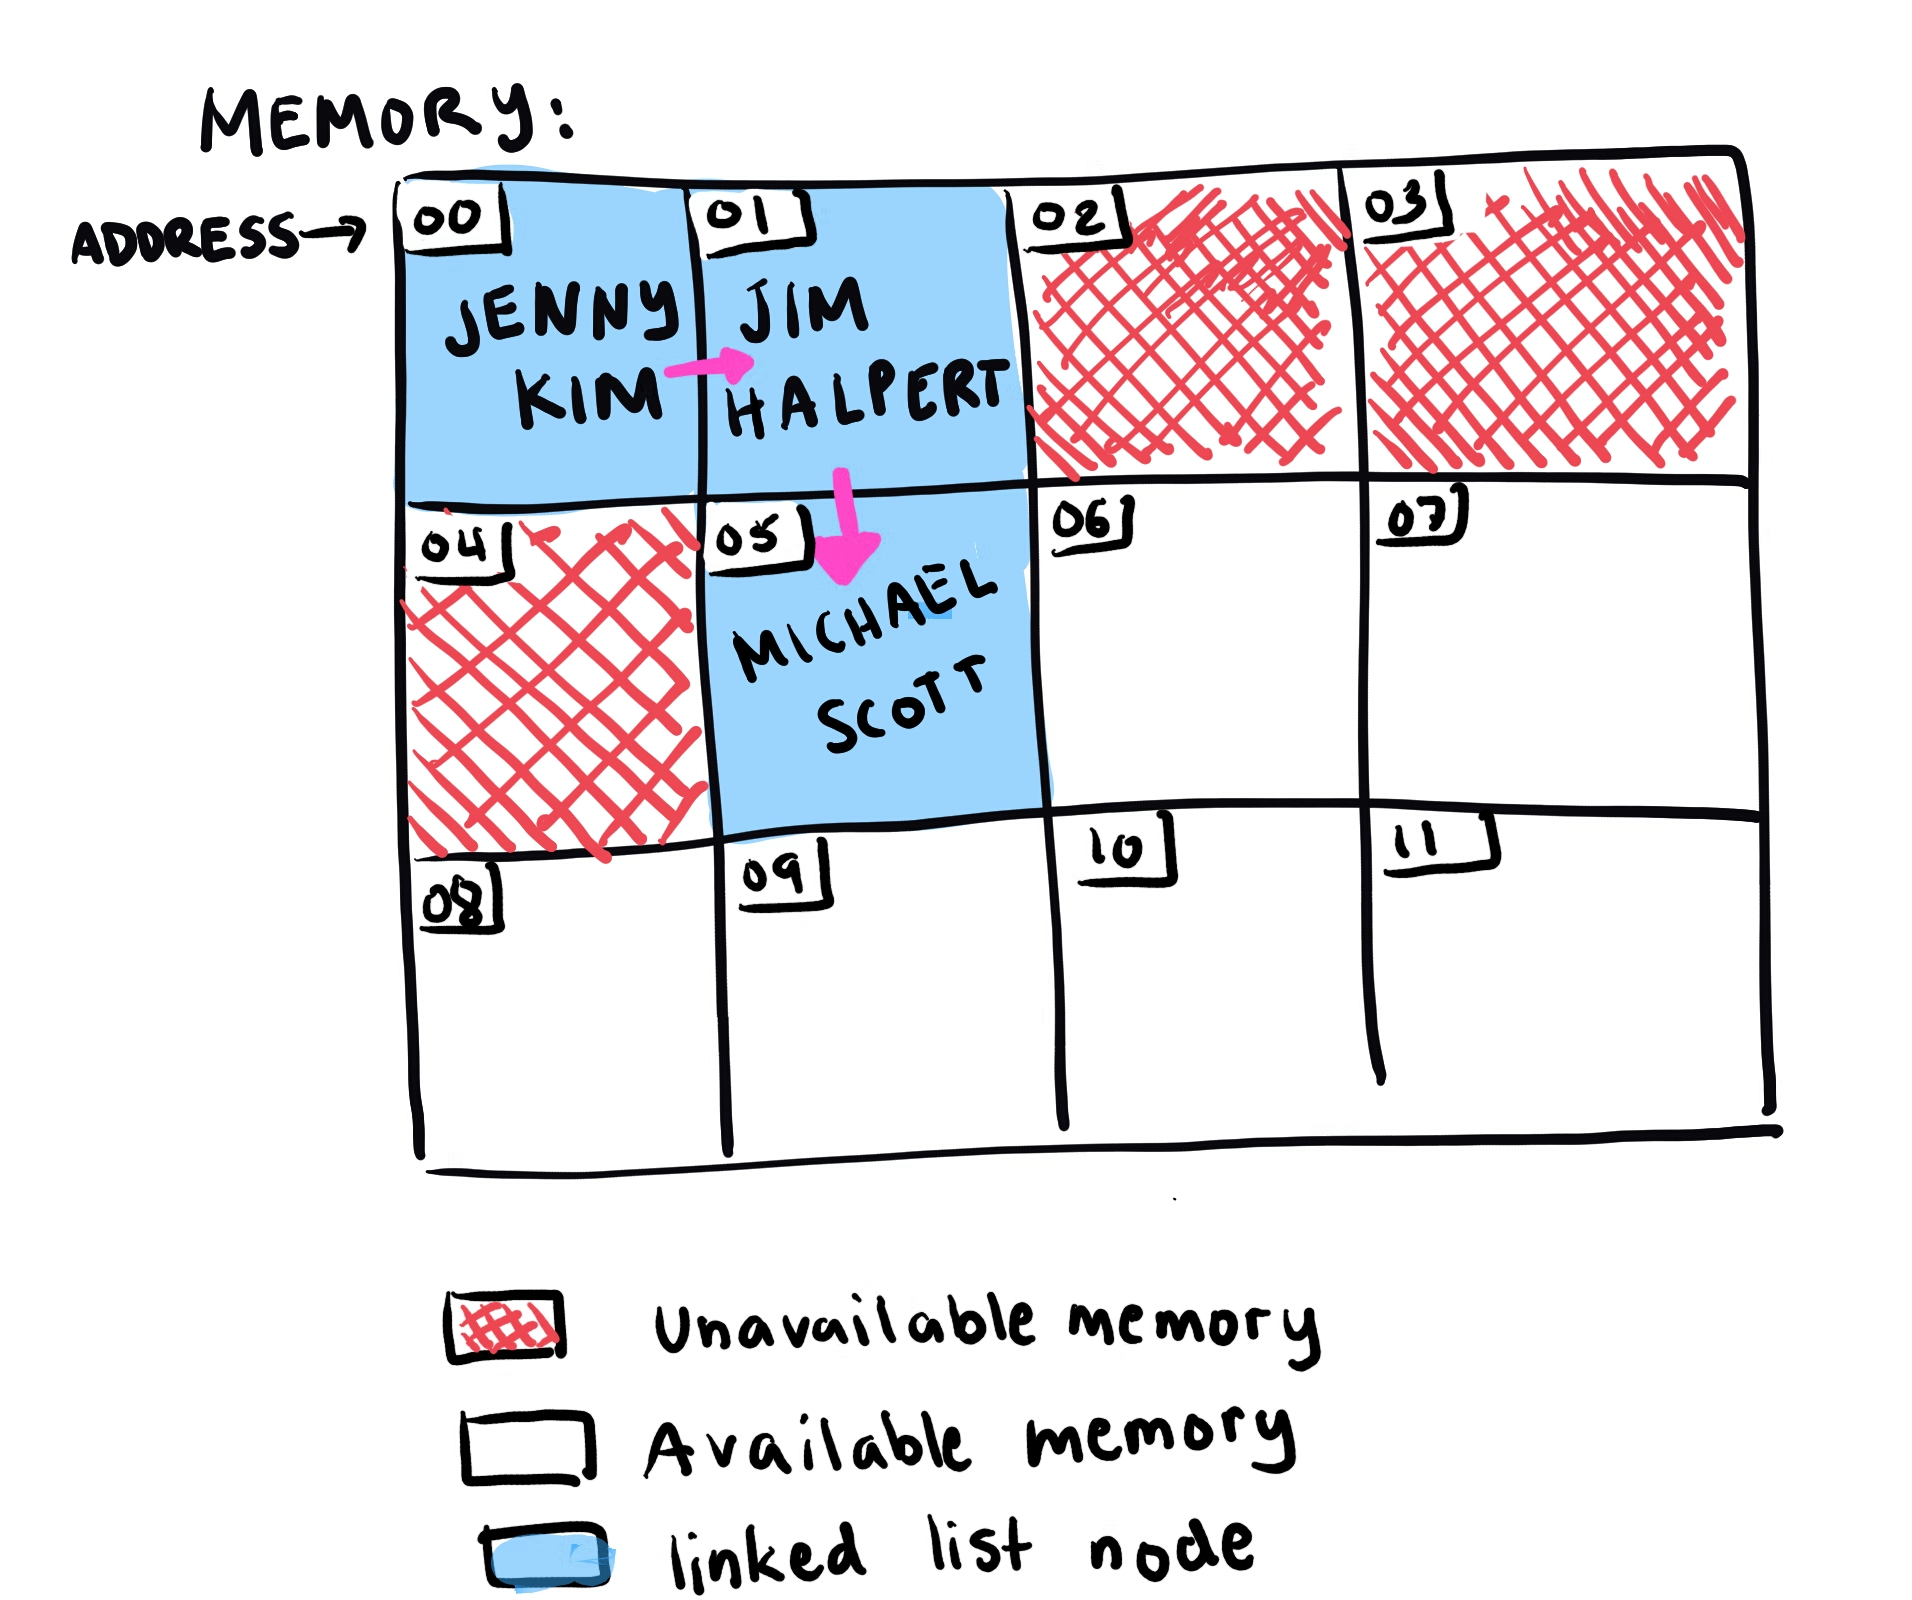 MEMORY:
ADDRESS→
00
01
02
03
JENNY
KIM
JIM
HALPERT
04
05
06
07
MICHAEL
SCOTT
08
09
10
11
Unavailable memory
Available memory
linked list node